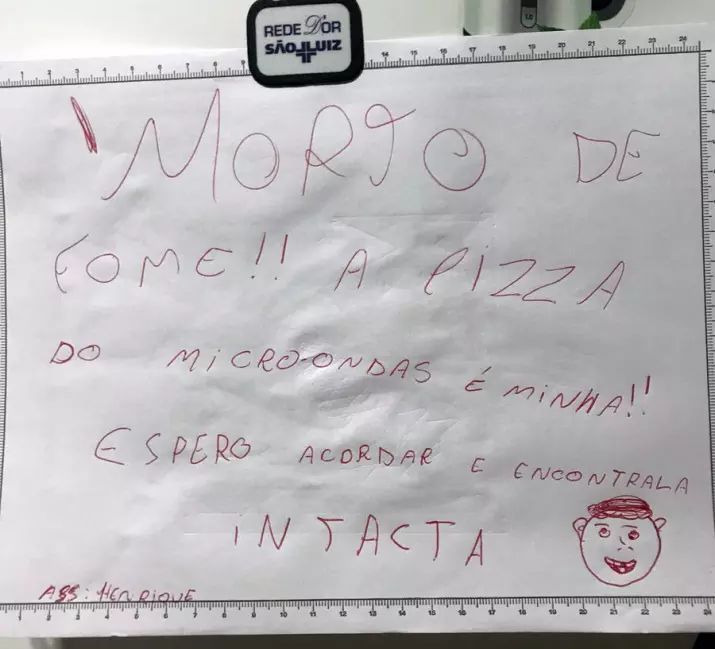 REDE D'OR
SÃO LUIZ
MORTO DE
FOME!! A PIZZA
DO MICRO-ONDAS É MINHA!!
ESPERO ACORDAR E ENCONTRALA
INTACTA
ASS: HENRIQUE